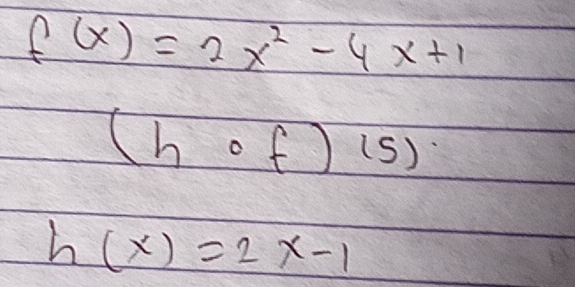 f(x) = 2x² - 4x+1
(h ∘ f) (5).
h(x) = 2x-1